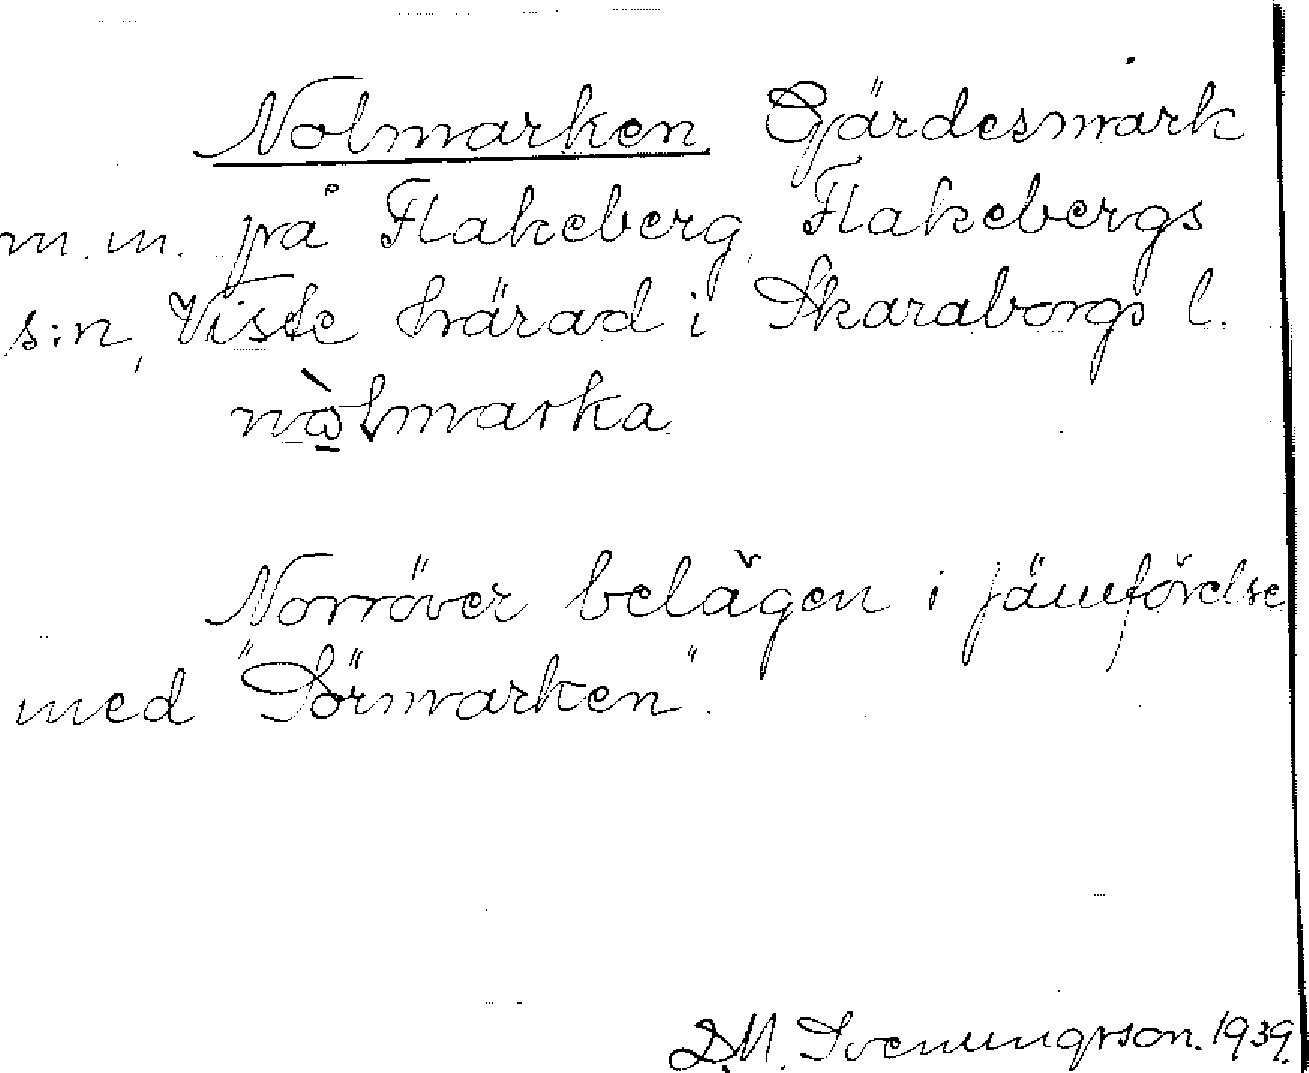 Nolmarken Gjärdesmark
m.m. på Flakeberg, Flakebergs
s:n, Viste härad i Skaraborgs l.
nòlmarka
Norröver belägen i jämförelse
med "Sörmarken".
D.M. Svenungsson. 1939.